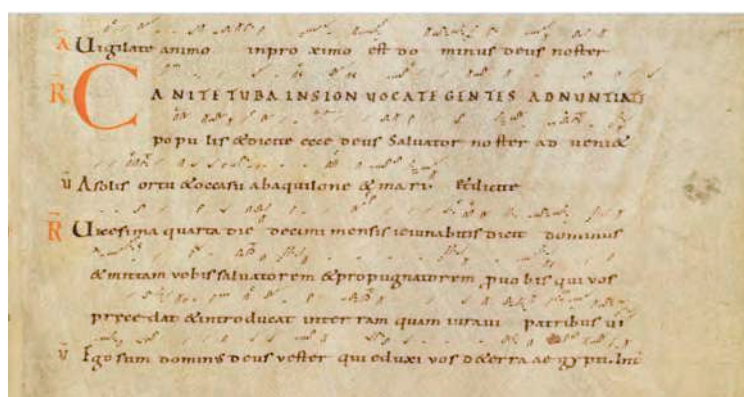 A Uigilate animo inpro ximo est do minus deus noster
R CANITE TUBA IN SION UOCATE GENTES ADNUNTIATE
popu lis & dicite ecce deus saluator noster ad ueni&
V A solis ortu & occasu ab aquilone & mari & dicite
R Uicesima quarta die decimi mensis ieiunabitis dicit dominus
& mittam uobis saluatorem & propugnatorem pro uobis qui uos
prece dat & introducat inter ram quam iuraui patribus
V Ego sum dominus deus uester qui eduxi uos de terra ae gypti